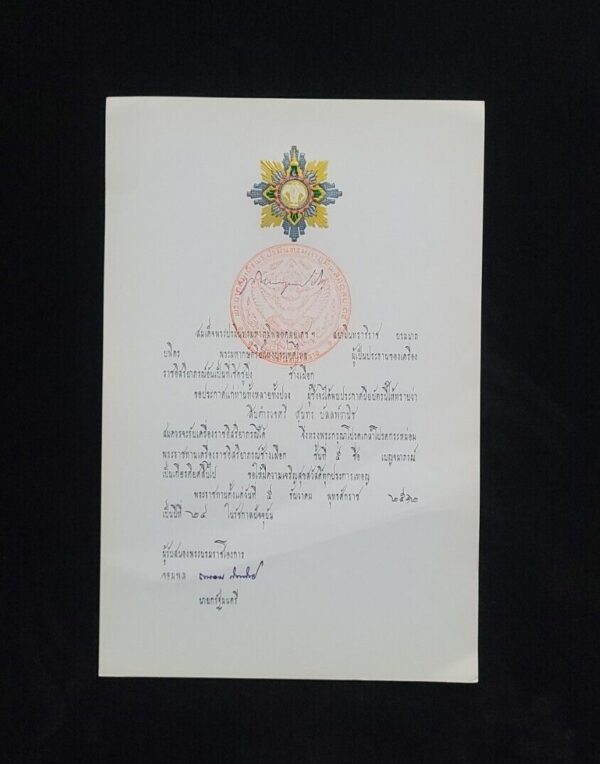 สมเด็จพระปรมินทรมหาภูมิพลอดุลยเดช ฯ สยามินทราธิราช บรมนาถ
บพิตร พระมหากษัตริย์แห่งประเทศไทย ผู้เป็นประธานของเครื่อง
ราชอิสริยาภรณ์อันเป็นที่เชิดชูยิ่ง ช้างเผือก
ขอประกาศแก่ท่านทั้งหลายทั้งปวง ผู้ซึ่งจะได้พบประกาศนียบัตรนี้ให้ทราบว่า
สิบตำรวจตรี สุนทร
สมควรจะรับเครื่องราชอิสริยาภรณ์ได้ จึ่งทรงพระกรุณาโปรดเกล้าโปรดกระหม่อม
พระราชทานเครื่องราชอิสริยาภรณ์ช้างเผือก ชั้นที่ ๕ ชื่อ เบญจมาภรณ์
เป็นเกียรติยศสืบไป ขอให้มีความเจริญสุขสวัสดิ์ทุกประการเทอญ
พระราชทานตั้งแต่วันที่ ๕ ธันวาคม พุทธศักราช ๒๕๑๒
เป็นปีที่ ๒๔ ในรัชกาลปัจจุบัน
ผู้รับสนองพระบรมราชโองการ
จอมพล
นายกรัฐมนตรี